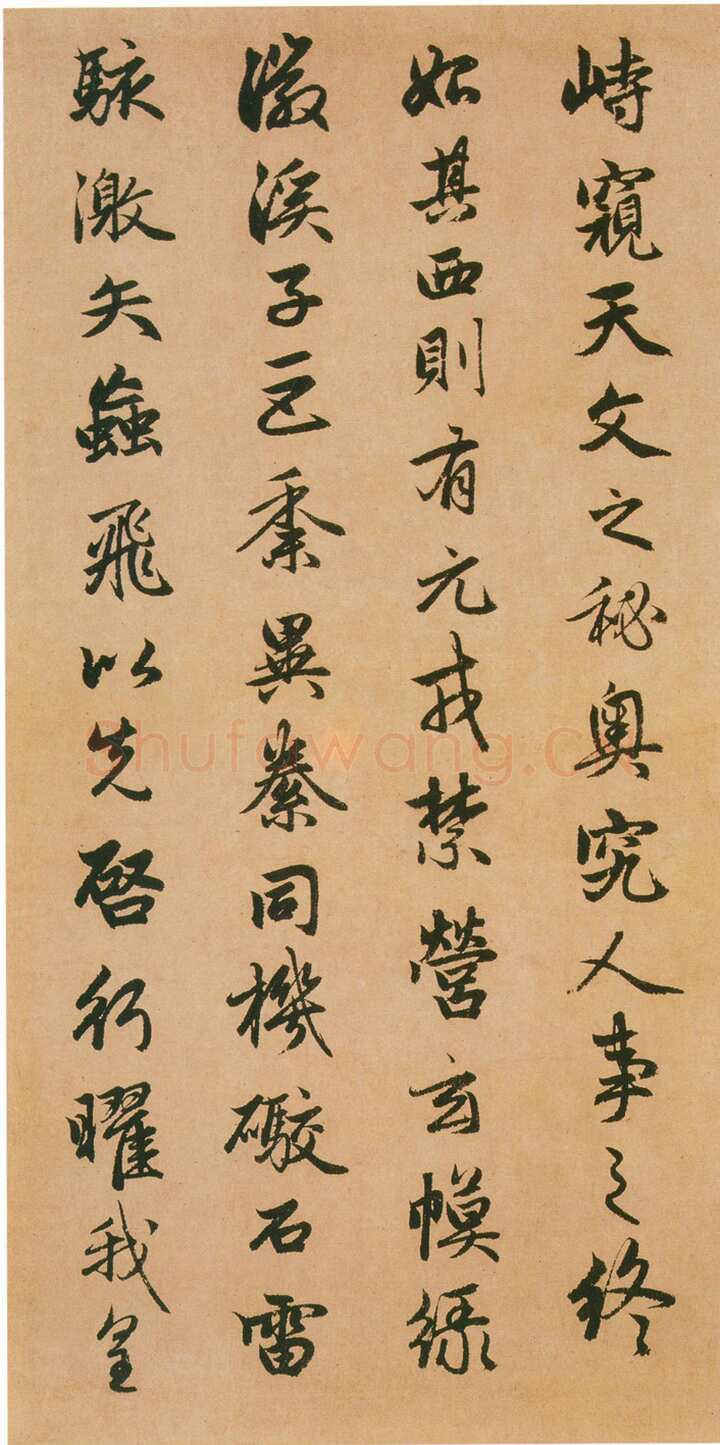 峙窺天文之秘奥究人事之終
始其西則有元戎禁營玄幙緑
徽溪子巨黍異絭同機礮石雷
駭激矢蝱飛以先啓行曜我皇
Shufawang.cn